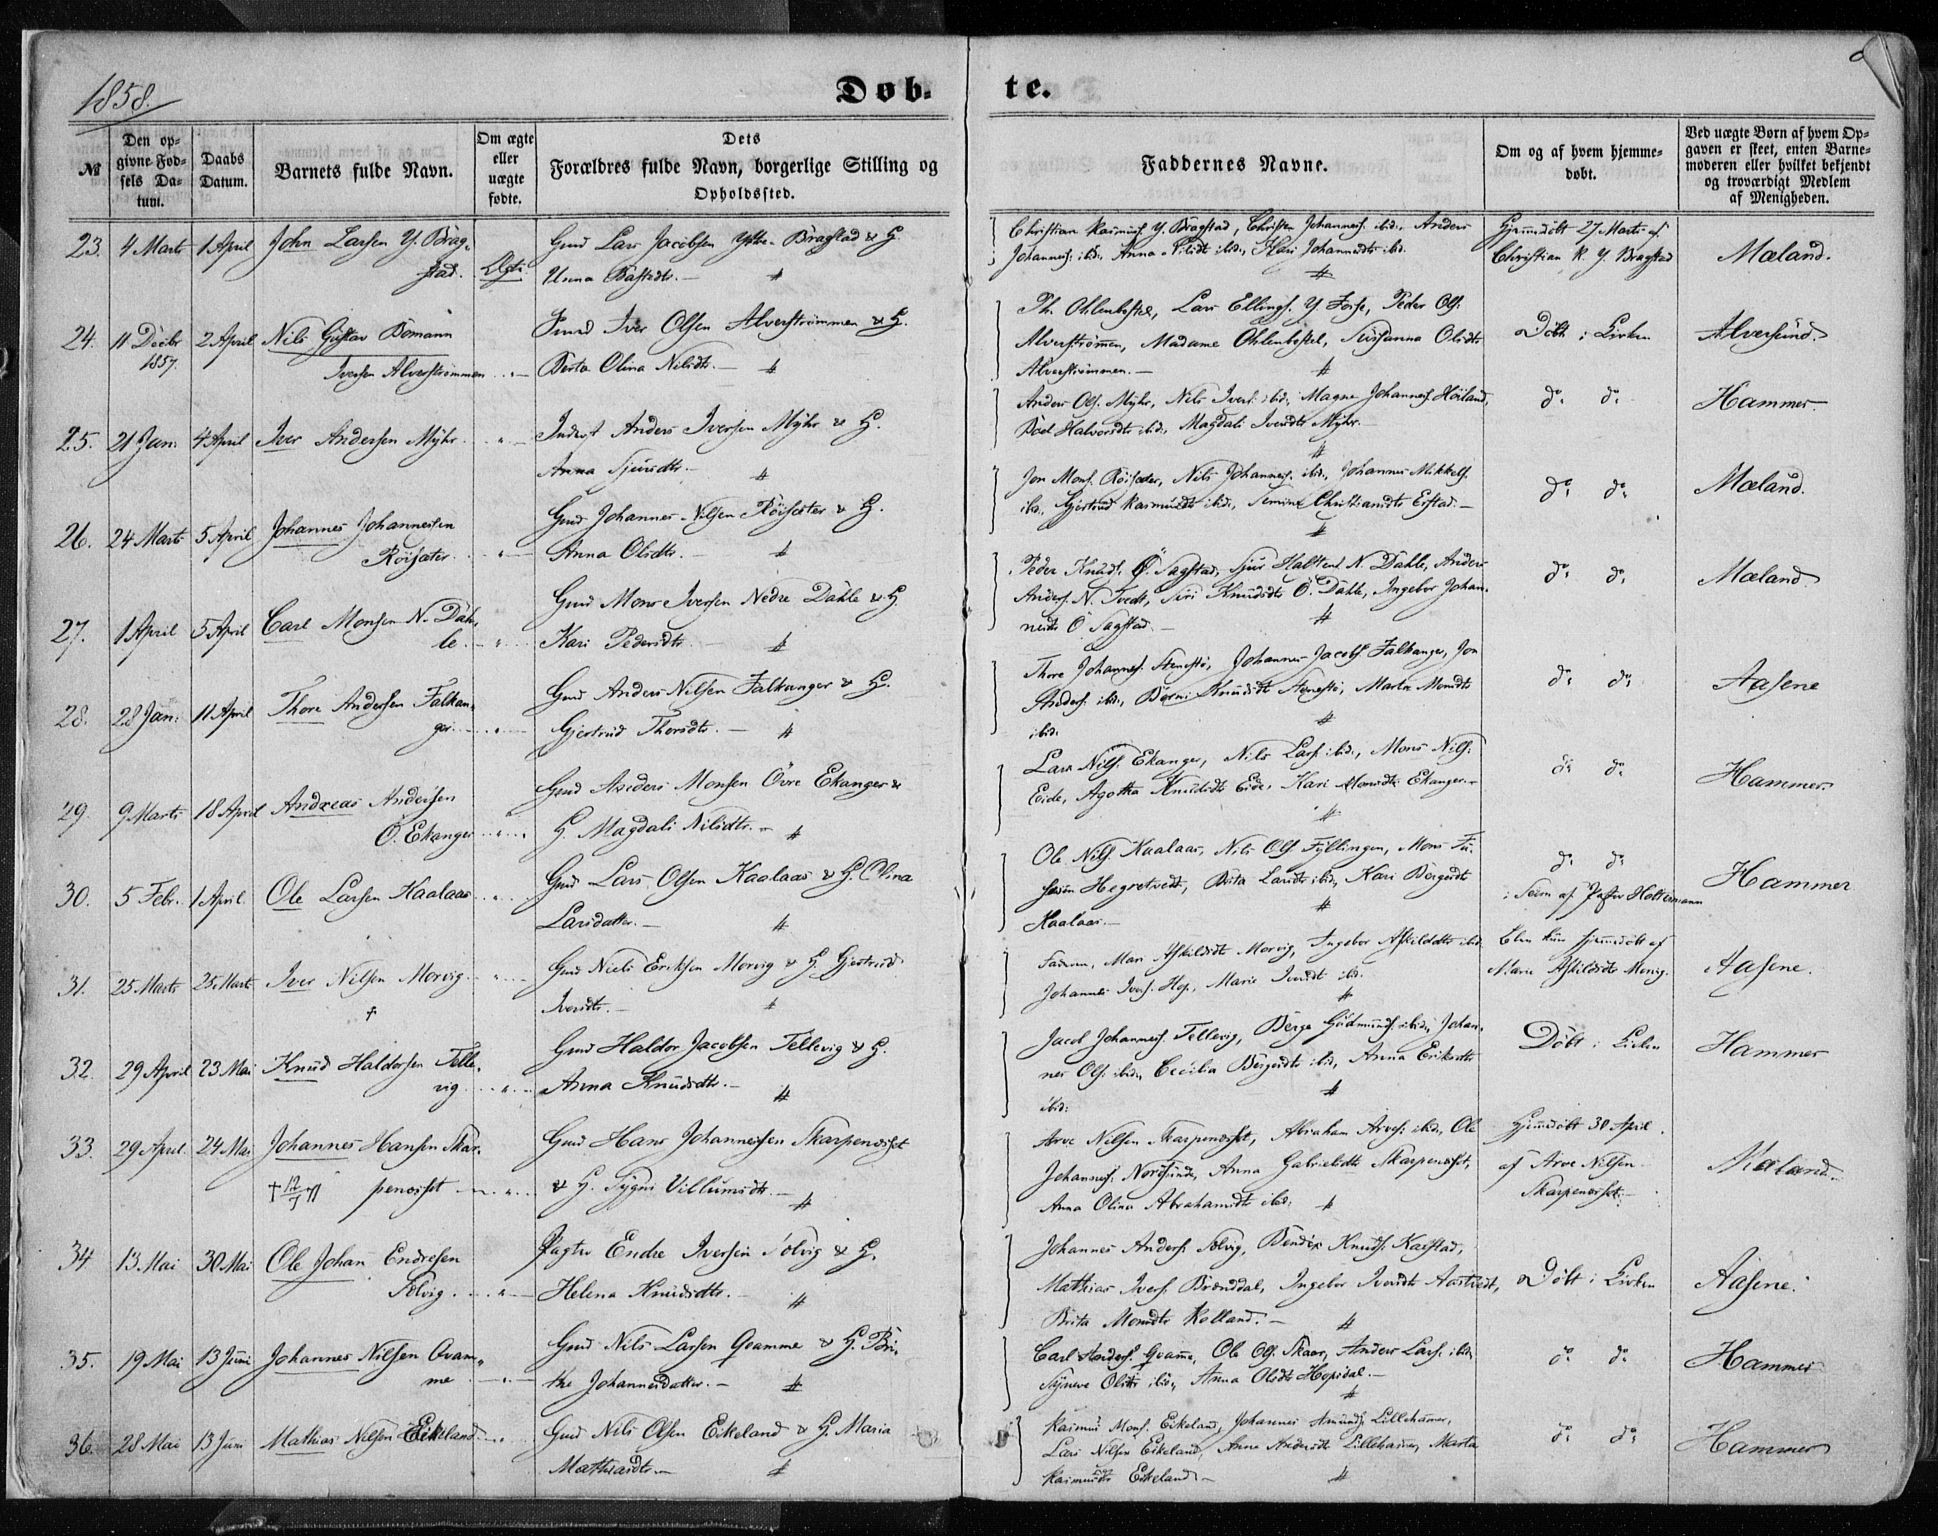 1858.
Døb-
te.
№
Den op-
givne Fød-
sels Da-
tum.
Daabs
Datum.
Barnets fulde Navn.
Om ægte
eller
uægte
fødte.
Dets
Forældres fulde Navn, borgerlige Stilling og
Opholdssted.
Faddernes Navne.
Om og af hvem hjemme-
døbt.
Ved uægte Børn af hvem Op-
gaven er skeet, enten Barne-
moderen eller hvilket bekjendt
og troværdigt Medlem
af Menigheden.
23. 4 Marts 1 April John Larsen Y. Brag-
stad. Ægte
Gmd Lars Jacobsen Yttre Bragstad & H.
Unna
Christian Rasmus. Y. Bragstad, Christen Johannes. ibid., Anders
Johannes. ibid., Anna ibid., Kari Johannesdtr ibid.
Hjemmedöbt 27 Marts af
Christian R. Y. Bragstad
Mæland.
24. 11 Decbr 2 April Nils Gustav Bomann
1857. Iversen Alverströmmen
Iver Olsen Alverströmmen & H.
Berta Olina Nilsdtr.
Th. Ohlenbostel, Lars Ellings. Y. Fosse, Peder Ols.
Alverströmmen, Madame Ohlenbostel, Susanna Olsdtr
Alverströmmen.
Döbt i Kirken
Alversund.
25. 21 Jan. 4 April Iver Andersen Myhr
Anders Iversen Myhr & H.
Anna Sjursdtr.
Anders Ols. Myhr, Nils Ivers. ibid., Magne Johannes. Höiland,
Halvorsdtr ibid., Magdali Iversdtr Myhr.
do. do.
Hammer.
26. 24 Marts 5 April Johannes Johannessen
Röisæter
Gmd Johannes Nilsen Röisæter & H.
Anna Olsdtr.
Jon Mons. Röisæter, Nils Johannes. ibid., Johannes Mikkels.
ibid., Gjertrud Rasmusdtr ibid., Christiansdtr Eistad.
do. do.
Mæland.
27. 1 April 5 April Carl Monsen N. Dah-
le.
Gmd Mons Iversen Nedre Dahle & H.
Kari Pedersdtr.
Peder Knuds. Ö. Sagstad, Sjur N. Dahle, Anders
Anders. N. Tvedt, Siri Knudsdtr Ö. Dahle, Ingebor Johan-
nesdtr Ö Sagstad.
do. do.
Mæland
28. 28 Jan. 11 April Thore Andersen Falkan-
ger
Gmd Anders Nilsen Falkanger & H.
Gjertrud Thorsdtr.
Thore Johannes. Stenestö, Johannes Jacobs. Falkanger, Jon
Anders. ibid., Knudsdtr Stenestö, Marta Monsdtr
ibid.
do. do.
Aasene
29. 9 Marts 18 April Andreas Andersen
Ö. Ekanger
Gmd Anders Monsen Övre Ekanger &
H. Magdali Nilsdtr.
Lars Nils. Ekanger, Nils Lars. ibid., Mons Nils.
Eide, Agotha Knudsdtr Eide, Kari Monsdtr Ekanger.
do. do.
Hammer
30. 5 Febr. 1 April Ole Larsen Kaalaas
Gmd Lars Olsen Kaalaas & H. Olina
Larsdatter.
Ole Nils. Kaalaas, Nils Ols. Fyllingen, Mons
Hegretvedt, Brita Larsdtr ibid., Kari Börgesdtr
Kaalaas.
do. do.
i Seim af Pastor Holtermann
Hammer
31. 25 Marts 25 Marts Iver Nilsen Morvig
†
Gmd Niels Eriksen Morvig & H. Gjertrud
Iversdtr.
Faderen, Mari Askildsdtr Morvig, Ingebor Askildsdtr ibid.
Johannes Ivers. Hop, Marie Iversdtr ibid.
Blev kun hjemmedöbt af
Marie Askildsdtr Morvig.
Aasene.
32. 29 April 23 Mai Knud Haldorsen Telle-
vig
Gmd Haldor Jacobsen Tellevig & H.
Anna Knudsdtr.
Jacob Johannes. Tellevig, Börge Gudmunds. ibid., Johan-
nes Ols. ibid., Cecilia Börgesdtr ibid., Anna Eriksdtr
ibid.
Döbt i Kirken
Hammer
33. 29 April 24 Mai Johannes Hansen Skar-
† 12/7 penæset
Gmd Hans Johannessen Skarpenæset
& H. Sygni Villumsdtr.
Arve Nilsen Skarpenæset, Abraham Arves. ibid., Ole
Johannes. Nordsund, Anna Gabrielsdtr Skarpenæset,
Anna Olina Abrahamsdtr ibid.
Hjemmedöbt 30 April
af Arve Nilsen
Skarpenæset.
Mæland
34 13 Mai 30 Mai Ole Johan Endresen
Solvig.
Pagter Endre Iversen Solvig & H.
Helena Knudsdtr.
Johannes Anders. Solvig, Bendix Knuds. Kaistad,
Mathias Ivers. Brænddal, Ingebor Iversdtr Aastvedt,
Brita Monsdtr Rolland.
Döbt i Kirken
Aasene.
35. 19 Mai 13 Juni Johannes Nilsen Qvam-
me
Gmd Nils Larsen Qvamme & H. Bri-
the Johannesdatter.
Carl Anders. Qvamme, Ole Ols. Skaar, Anders Lars. ibid.
Synneve Olsdtr ibid., Anna Olsdtr Hopsdal.
do. do.
Hammer
36. 28 Mai 13 Juni Mathias Nilsen Eikeland
Gmd Nils Olsen Eikeland & H. Maria
Mathiasdtr.
Rasmus Mons. Eikeland, Johannes Amunds. Lillehammer,
Lars Nilsen Eikeland, Anna Andersdtr Lillehammer, Marta
Rasmusdtr Eikeland
do. do.
Hammer